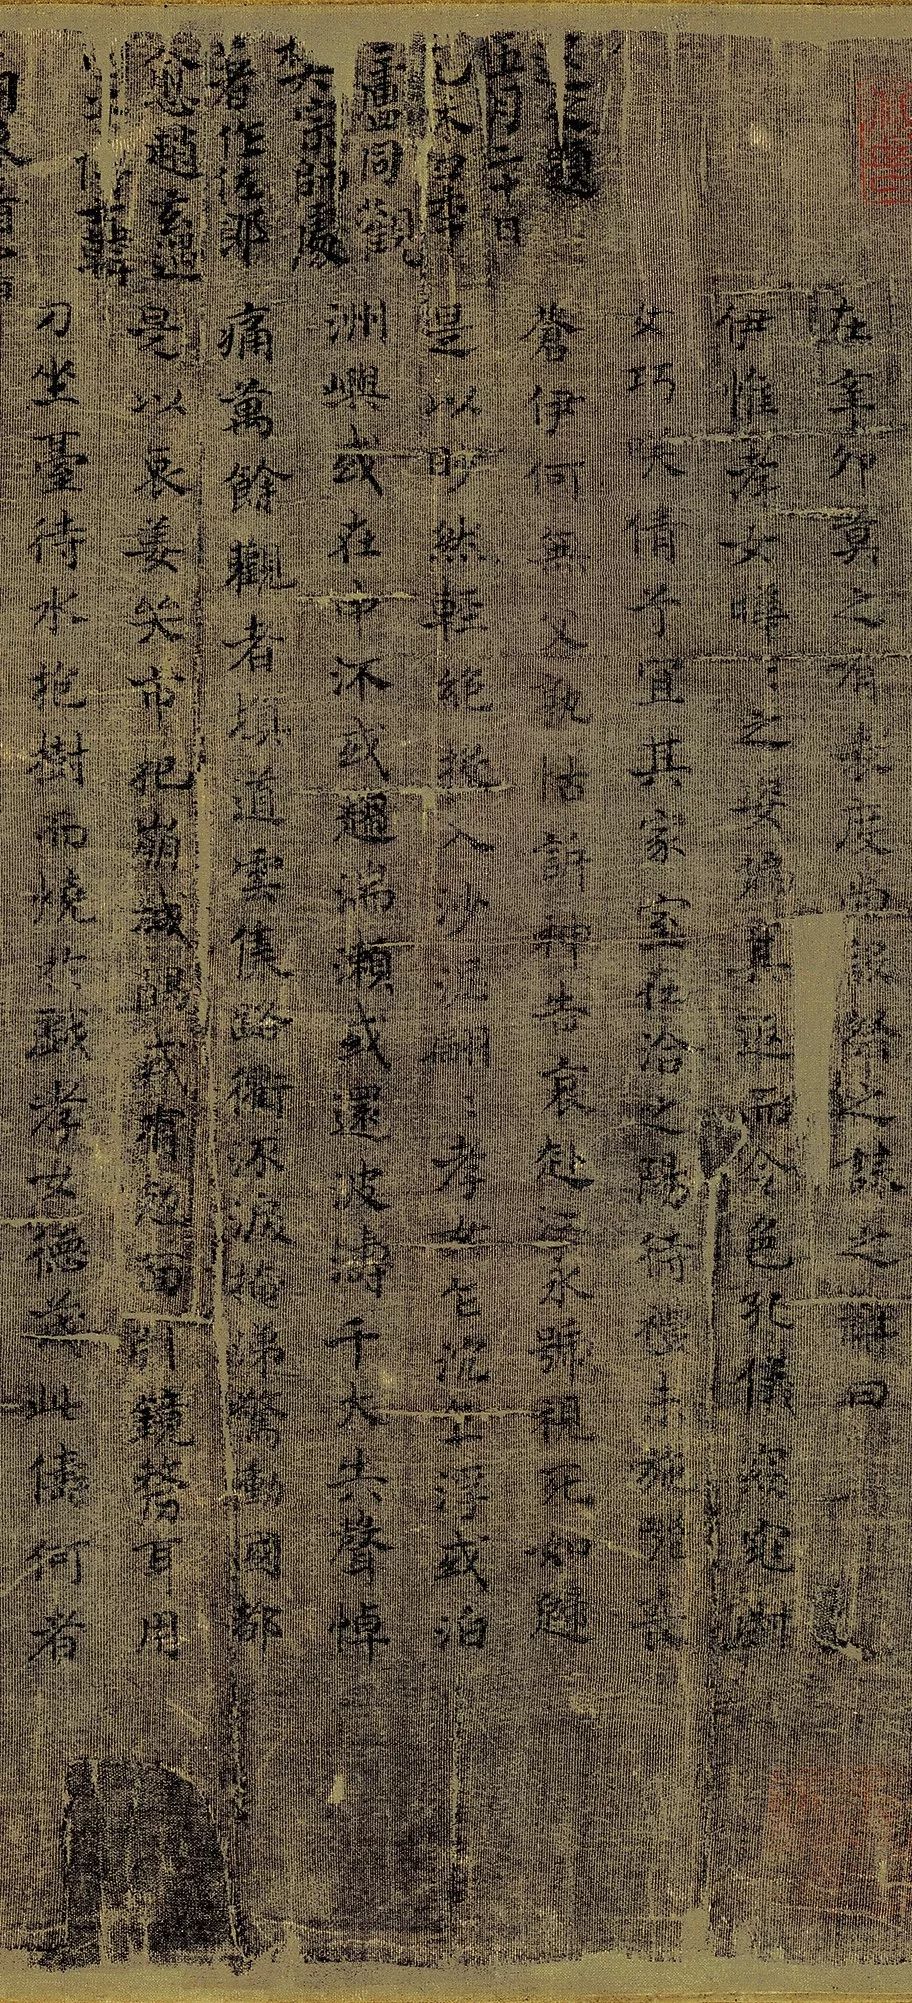 愈趙玄遇
著作佐郎
宗師處
盧同觀
五月二十日
之題
在辛卯莫之有表度尚設祭之誄之辭曰
伊惟孝女曄〻之姿偏其返而令色孔儀窈窕淑
女巧咲倩兮宜其家室在洽之陽待禮未施嗟喪
蒼伊何無父孰怙訴神告哀赴江永號視死如歸
是以眇然輕絕投入沙泥翩〻孝女乍沉乍浮或泊
洲嶼或在中流或趨湍瀨或還波濤千夫失聲悼
痛萬餘觀者填道雲集路衢流淚掩涕驚慟國都
是以哀姜哭市杞崩城隅或有剋面引鏡剺耳用
刀坐臺待水抱樹而燒於戲孝女德茂此儔何者